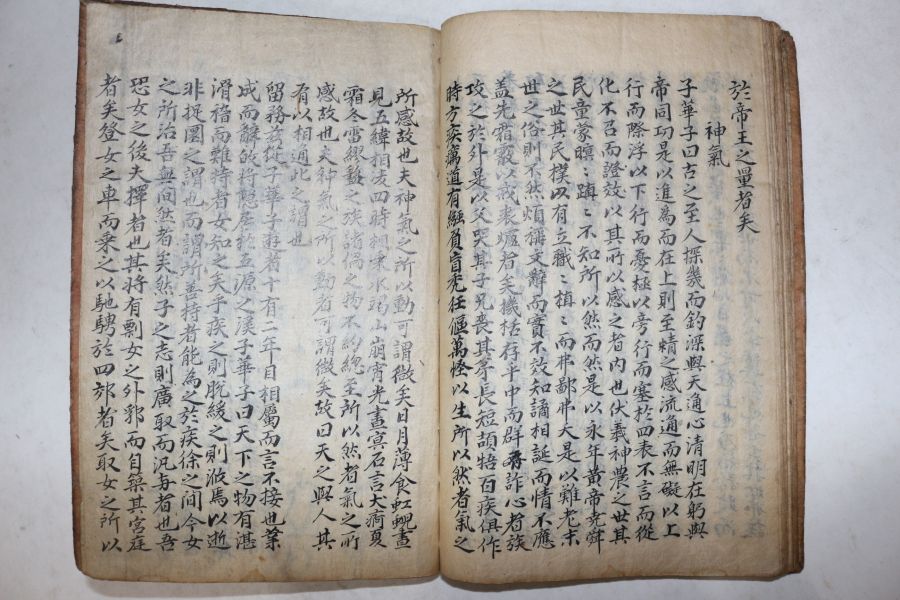 於帝王之量者矣
神氣
子華子曰古之至人探幾而鈎深與天通心清明在躬與
帝同功是以進爲而在上則至精之感流通而無礙以上
行而際浮以下行而憂極以旁行而塞於四表不言而從
化不召而證效以其所以感之者內也伏義神農之世其
民童蒙瞑〻蹎〻不知所以然而然是以永年黃帝堯舜
之世其民樸以有立職〻植〻而弗鄙弗夭是以難老末
世之俗則不然煩稱文辭而實不效知譎相誕而情不應
盖先霜霰以戒裘爐者矣機括存乎中而群有詐心者族
攻之於外是以父哭其子兄喪其弟長短頡牾百疾俱作
時方疾癘道有繈負盲禿狂傴萬怪以生所以然者氣之
所感故也夫神氣之所以動可謂微矣日月薄食虹蜺晝
見五緯相凌四時相乘水竭山崩宵光晝冥石言犬痾夏
霜冬雷繆盭之族諸偶之物不約總至所以然者氣之所
感故也夫神氣之所以動者可謂微矣故曰天之與人其
有以相通此之謂也
留務茲從子華子遊者十有二年目相屬而言不接也業
成而辭歸將隱居於五源之溪子華子曰天下之物有湛
滑稽而難持者女知之矣乎疾之則脫緩之則㳺焉以逝
非捉圂之謂也而謂所善持者能爲之於疾徐之間今女
之所治吾無間然者矣然子之志則廣取而汎與者也吾
恐女之後夫擇者也其將有剽女之外郛而自築其宮庭
者矣登女之車而乘之以馳騁於四郊者矣取女之所以